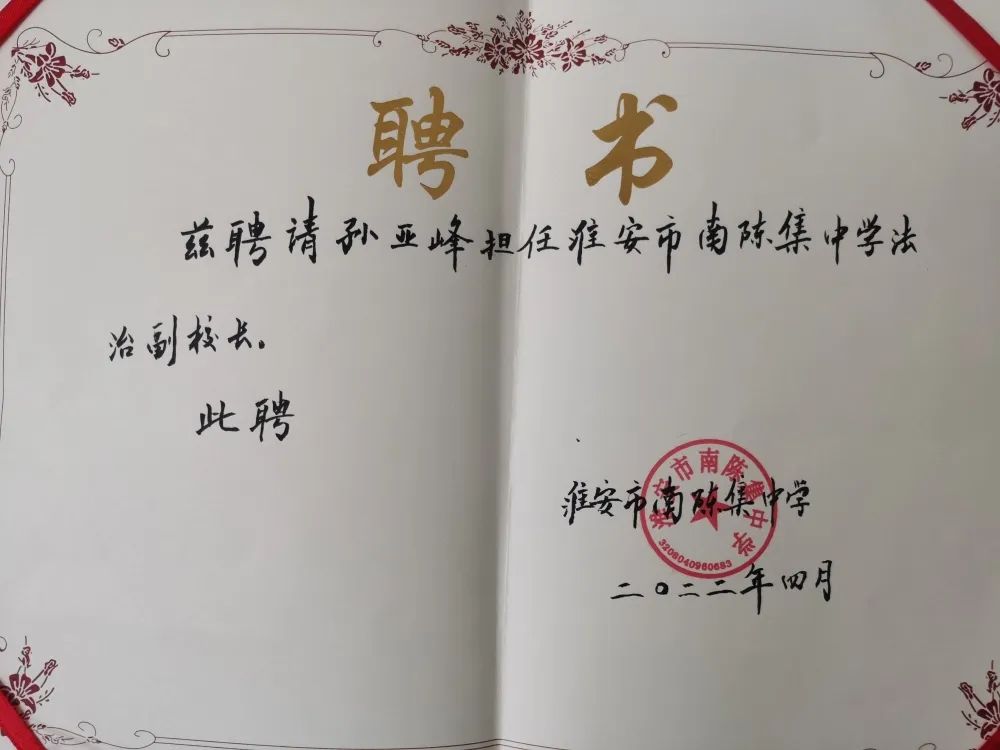 聘书
兹聘请孙亚峰担任淮安市南陈集中学法
治副校长。
此聘
淮安市南陈集中学
淮安市南陈集中学
3208040960683
二〇二二年四月